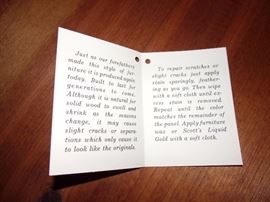 Just as our forefathers
made this style of fur-
niture it is produced again
today. Built to last for
generations to come.
Although it is natural for
solid wood to swell and
shrink as the seasons
change, it may cause
slight cracks or separa-
tions which only cause it
to look like the originals.
To repair scratches or
slight cracks just apply
stain sparingly, feather-
ing as you go. Then wipe
with a soft cloth until ex-
cess stain is removed.
Repeat until the color
matches the remainder of
the panel. Apply furniture
wax or Scott's Liquid
Gold with a soft cloth.